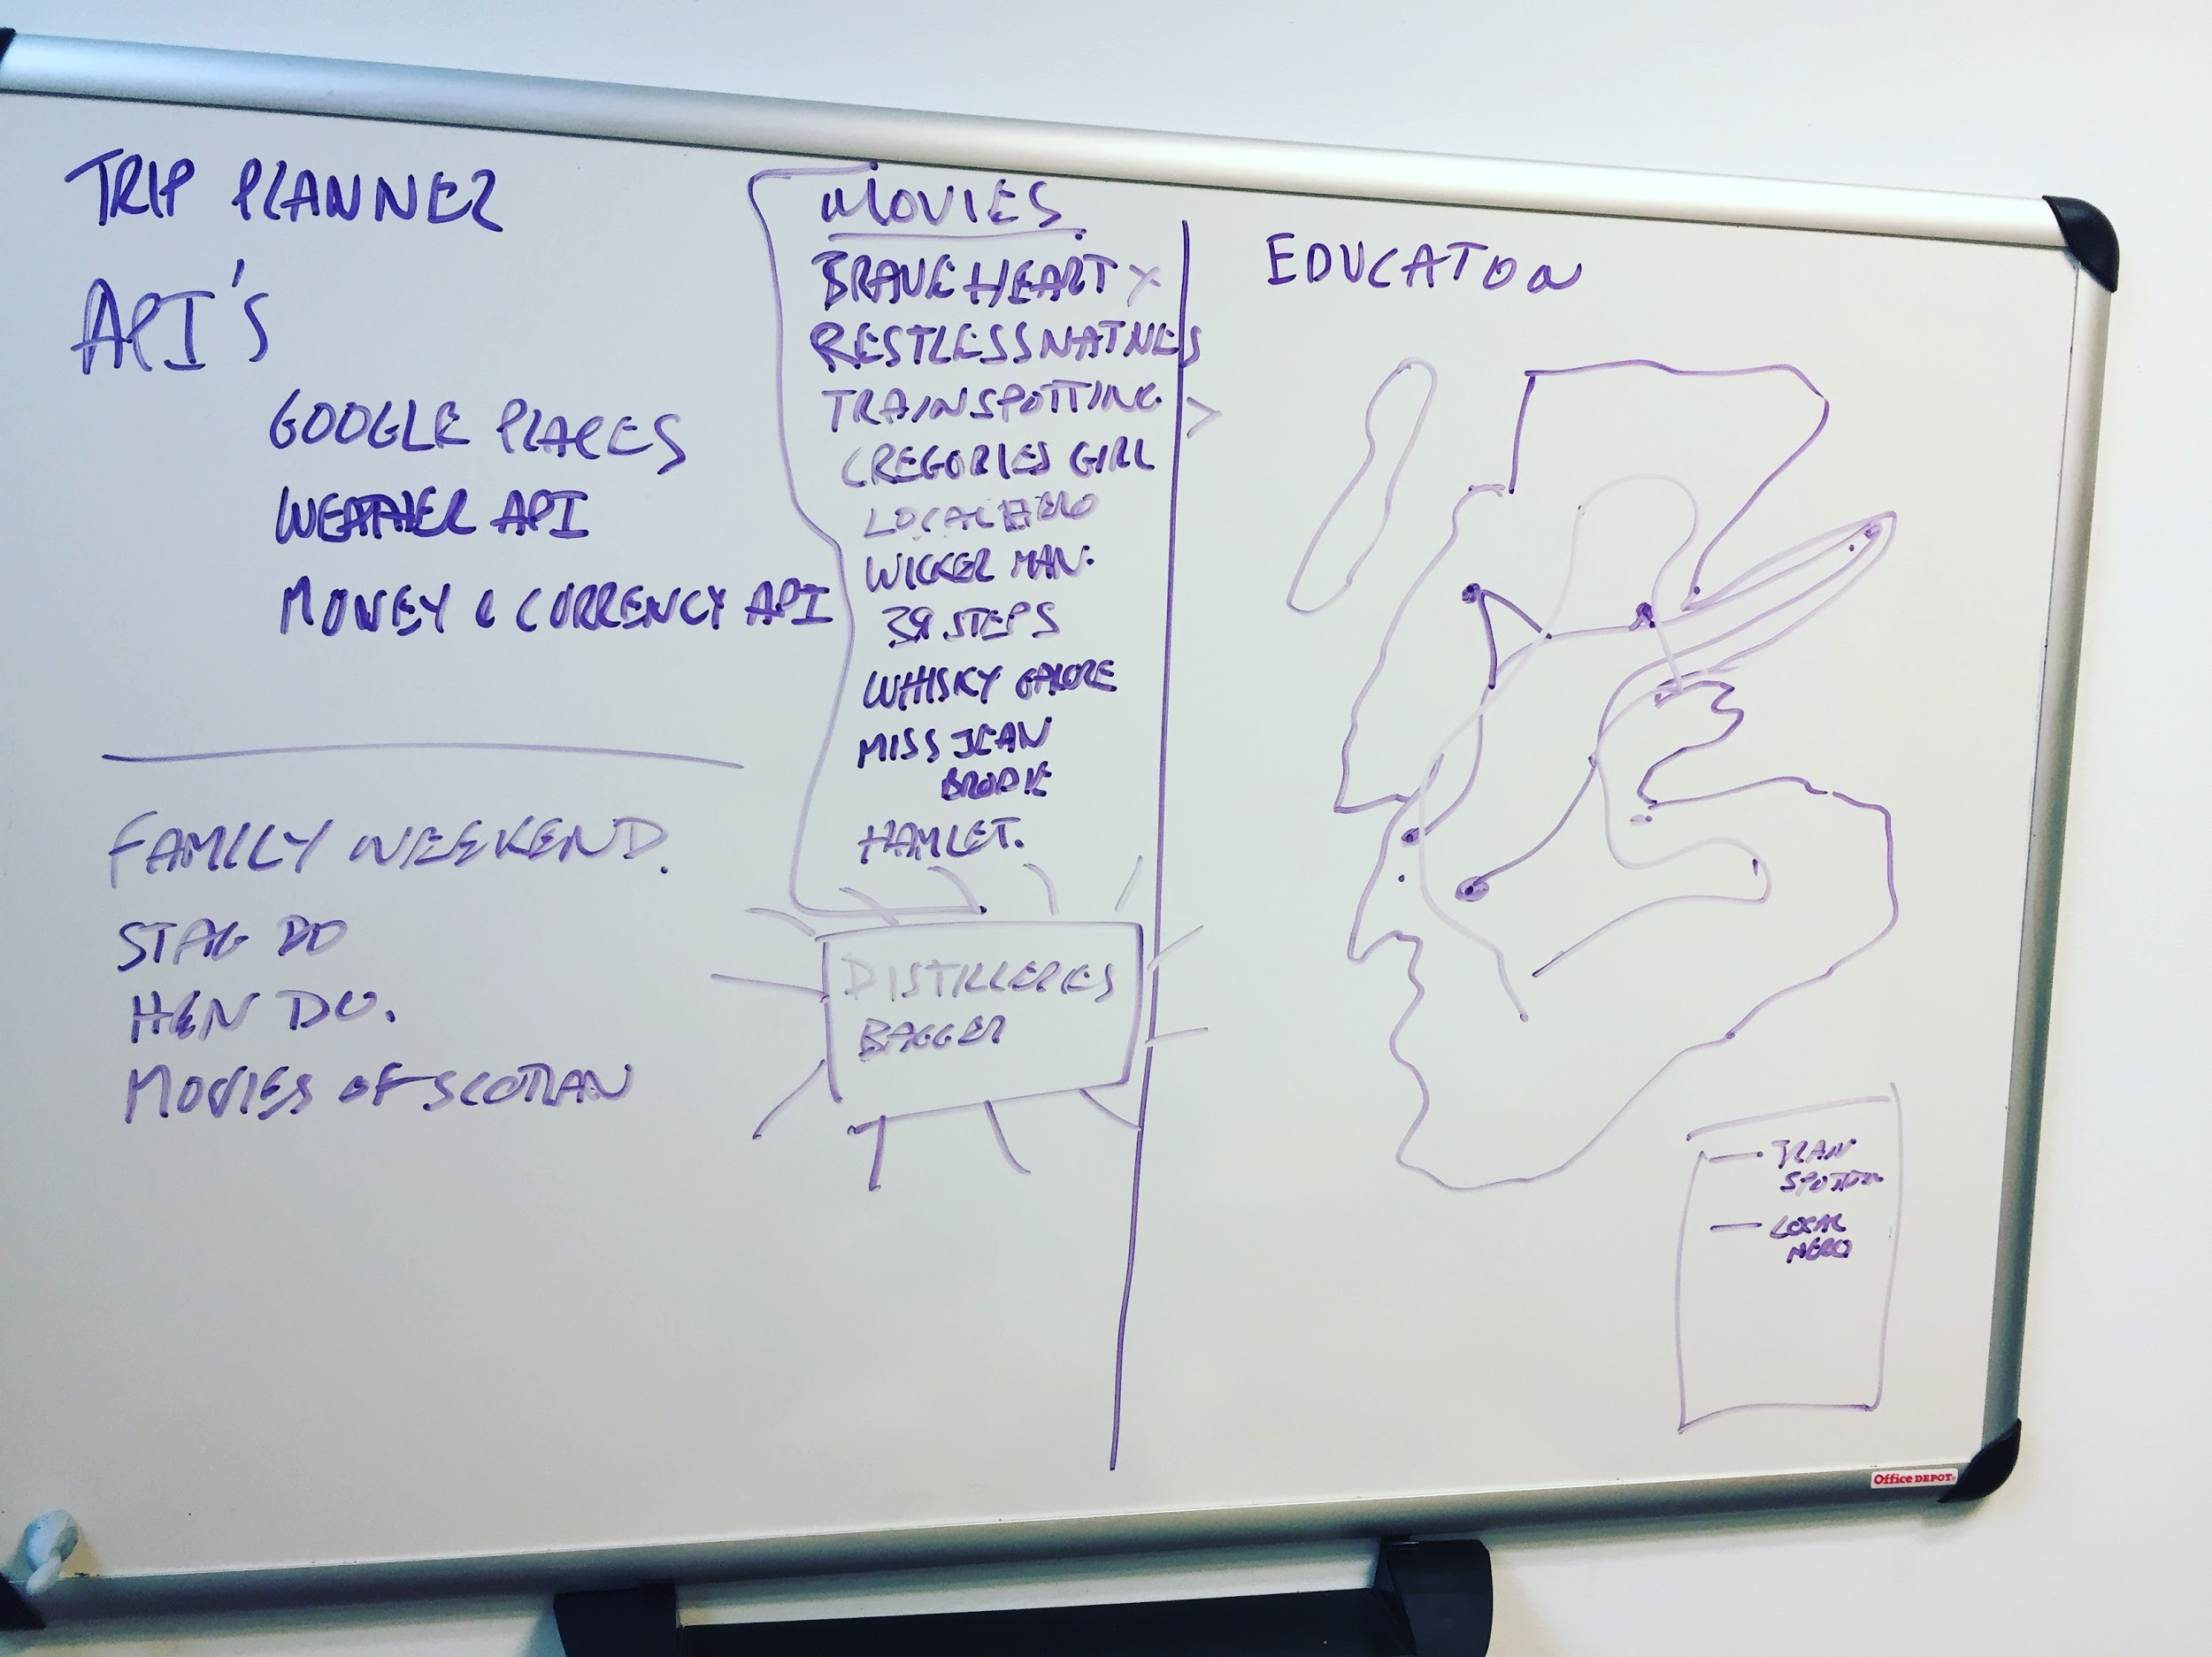 TRIP PLANNER
API'S
GOOGLE PLACES
WEATHER API
MONEY & CURRENCY API
FAMILY WEEKEND.
STAG DO
HEN DO.
MOVIES OF SCOTLAN
MOVIES
BRAVEHEART X
RESTLESS NATNES
TRAINSPOTTING >
GREGORIES GIRL
LOCAL HERO
WICKER MAN.
39 STEPS
WHISKY GALORE
MISS JEAN
BRODIE
HAMLET.
DISTILLERIES
BAGGER
EDUCATON
TRAN
SPOTTIN
LOCAL
HERO
Office DEPOT